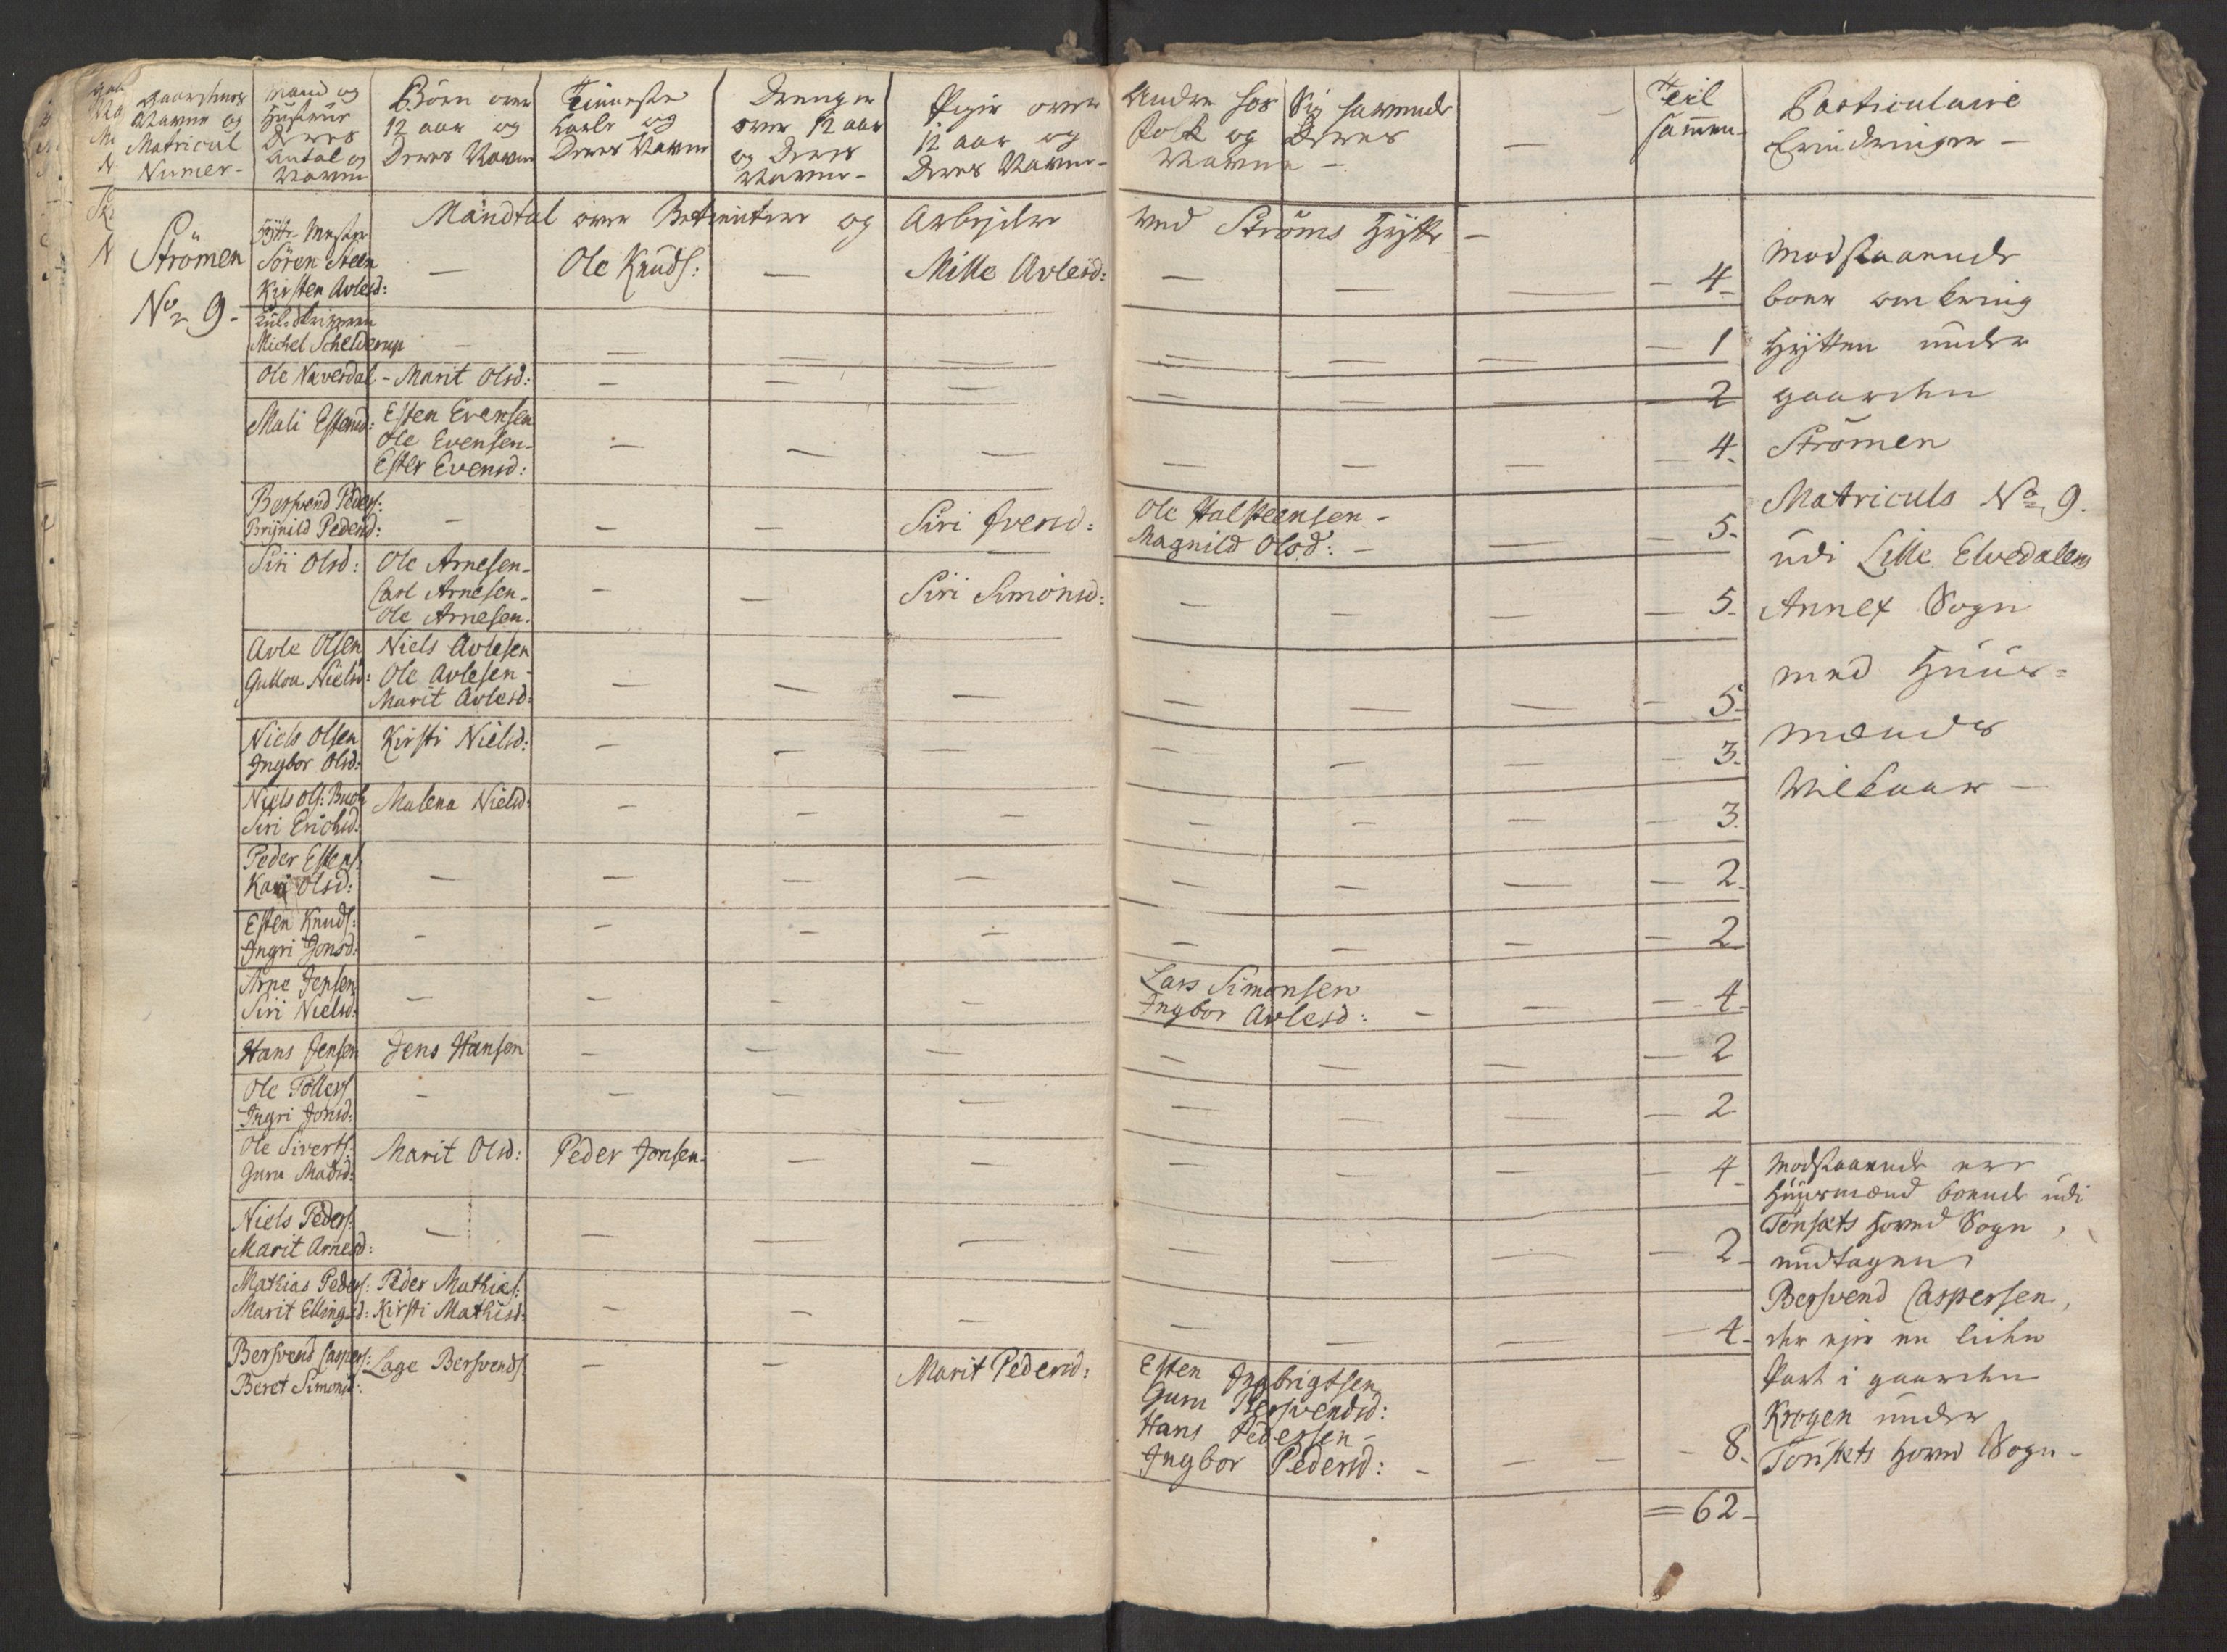 Gaardenes Navne og Matricul Numer-
Mand og Hustrue Deres Antal og Navne
Börn over 12 aar og Deres Navne
Tieneste Karle og Deres Navne
Drenge over 12 aar og Deres Navne-
Piger over 12 aar og Deres Navne-
Andre hos Sig havende Folk og Deres Navne -
Teil sammen-
Particulaire Erindringer -
Mandtal over Betiente og Arbejdere ved Ströms Hytte -
Strömen
No 9-
Hytte Mester
Sören Steen
Kirsten Avlesd:
Ole Knuds:
Mille Avlesd:
4-
Michel Schelderup
1
Ole Næverdal - Marit Olsd:
2
Mali Estensd:
Esten Evensen
Ole Evensen-
Ester Evensd:
4-
Bersvend Peders:
Brynild Pedersd:
Siri Iversd:
Ole Halsteensen -
Magnild Olsd: -
5-
Siri Olsd:
Ole Arnesen-
Carl Arnesen-
Ole Arnesen.
Siri Simonsd:
5-
Avle Olsen
Gullou Nielsd:
Niels Avlesen
Ole Avlesen-
Marit Avlesd:
5-
Niels Olsen
Ingbor Olsd:
Kirsti Nielsd:
3-
Niels Ols:
Siri Erichsd:
Malena Nielsd:
3.
Peder Estens:
Kari Olsd:
2-
Esten Knuds:
Ingri Jonsd:
2
Arne Jensen
Siri Nielsd:
Lars Simonsen
Ingbor Avlesd: -
4-
Hans Jensen
Jens Hansen
2
Ole Tollefs:
Ingri Jonsd:
2
Ole Siverts:
Guru Madsd:
Marit Olsd:
Peder Jonsen-
4-
Niels Peders:
Marit Arnesd:
2-
Mathias Peders:
Marit Ellingsd:
Peder Mathias:
Kirsti Mathisd:
4-
Bersvend Caspers:
Beret Simonsd:
Lage Bersvends:
Marit Pedersd:
Esten Ingbrigtsen
Guru Bersvendsd:
Hans Pedersen -
Ingbor Pedersd: -
8-
=62-
Modstaaende
boer omkring
Hytten under
gaarden
Strömen
Matriculs No 9.
udi Lille Elvedalens
Annex Sogn
med Huus=
mænds
Wilkaar -
Modstaaende ere
Huusmænd boende udi
Tönsæts Hoved Sogn,
undtagen
Bersvend Caspersen,
der ejer en liden
Part i gaarden
Krogen under
Tönsets Hoved Sogn-